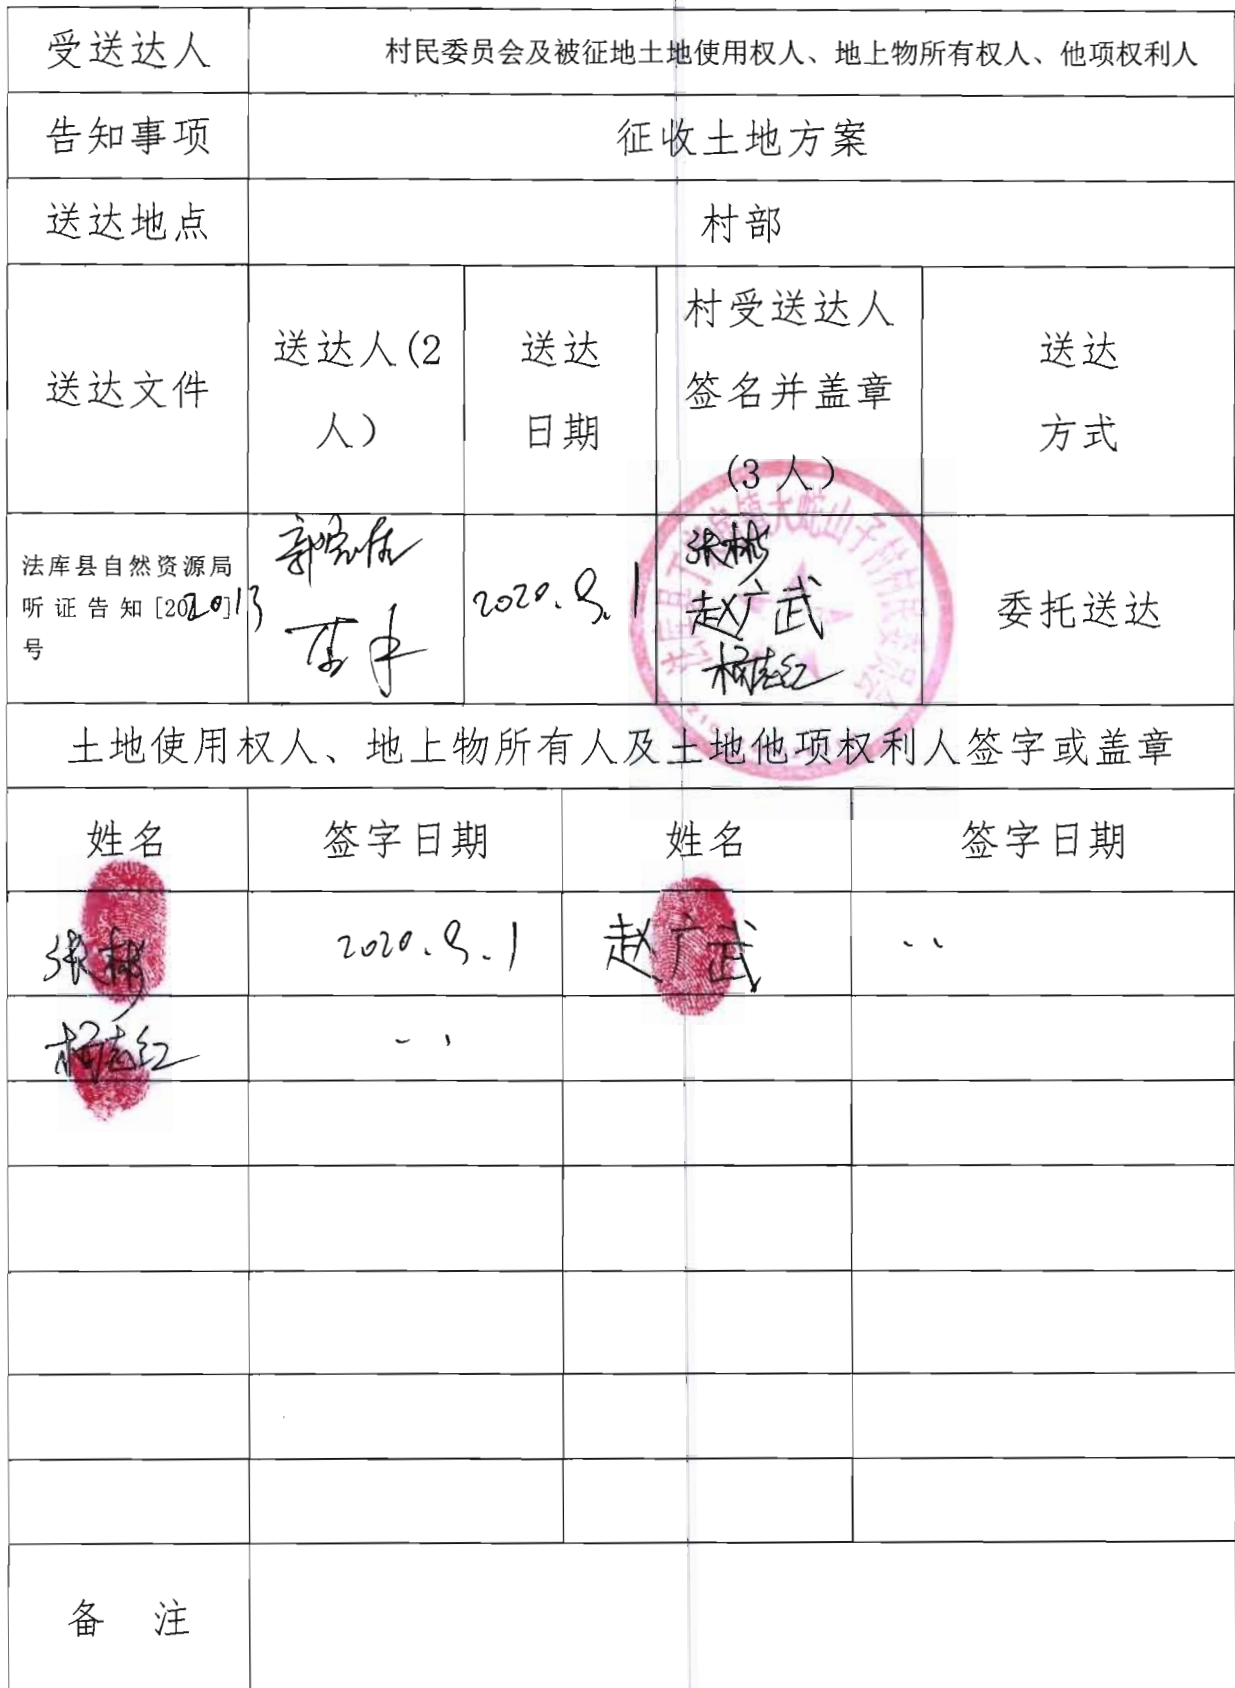 受送达人
村民委员会及被征地土地使用权人、地上物所有权人、他项权利人
告知事项
征收土地方案
送达地点
村部
送达文件
送达人(2
人)
送达
日期
村受送达人
签名并盖章
(3 人)
送达
方式
法库县自然资源局
听证告知[2020]13
号
2020.9.1
张彬
赵广武
杨志红
委托送达
土地使用权人、地上物所有人及土地他项权利人签字或盖章
姓名
签字日期
姓名
签字日期
张彬
2020.9.1
赵广武
杨志红
备 注